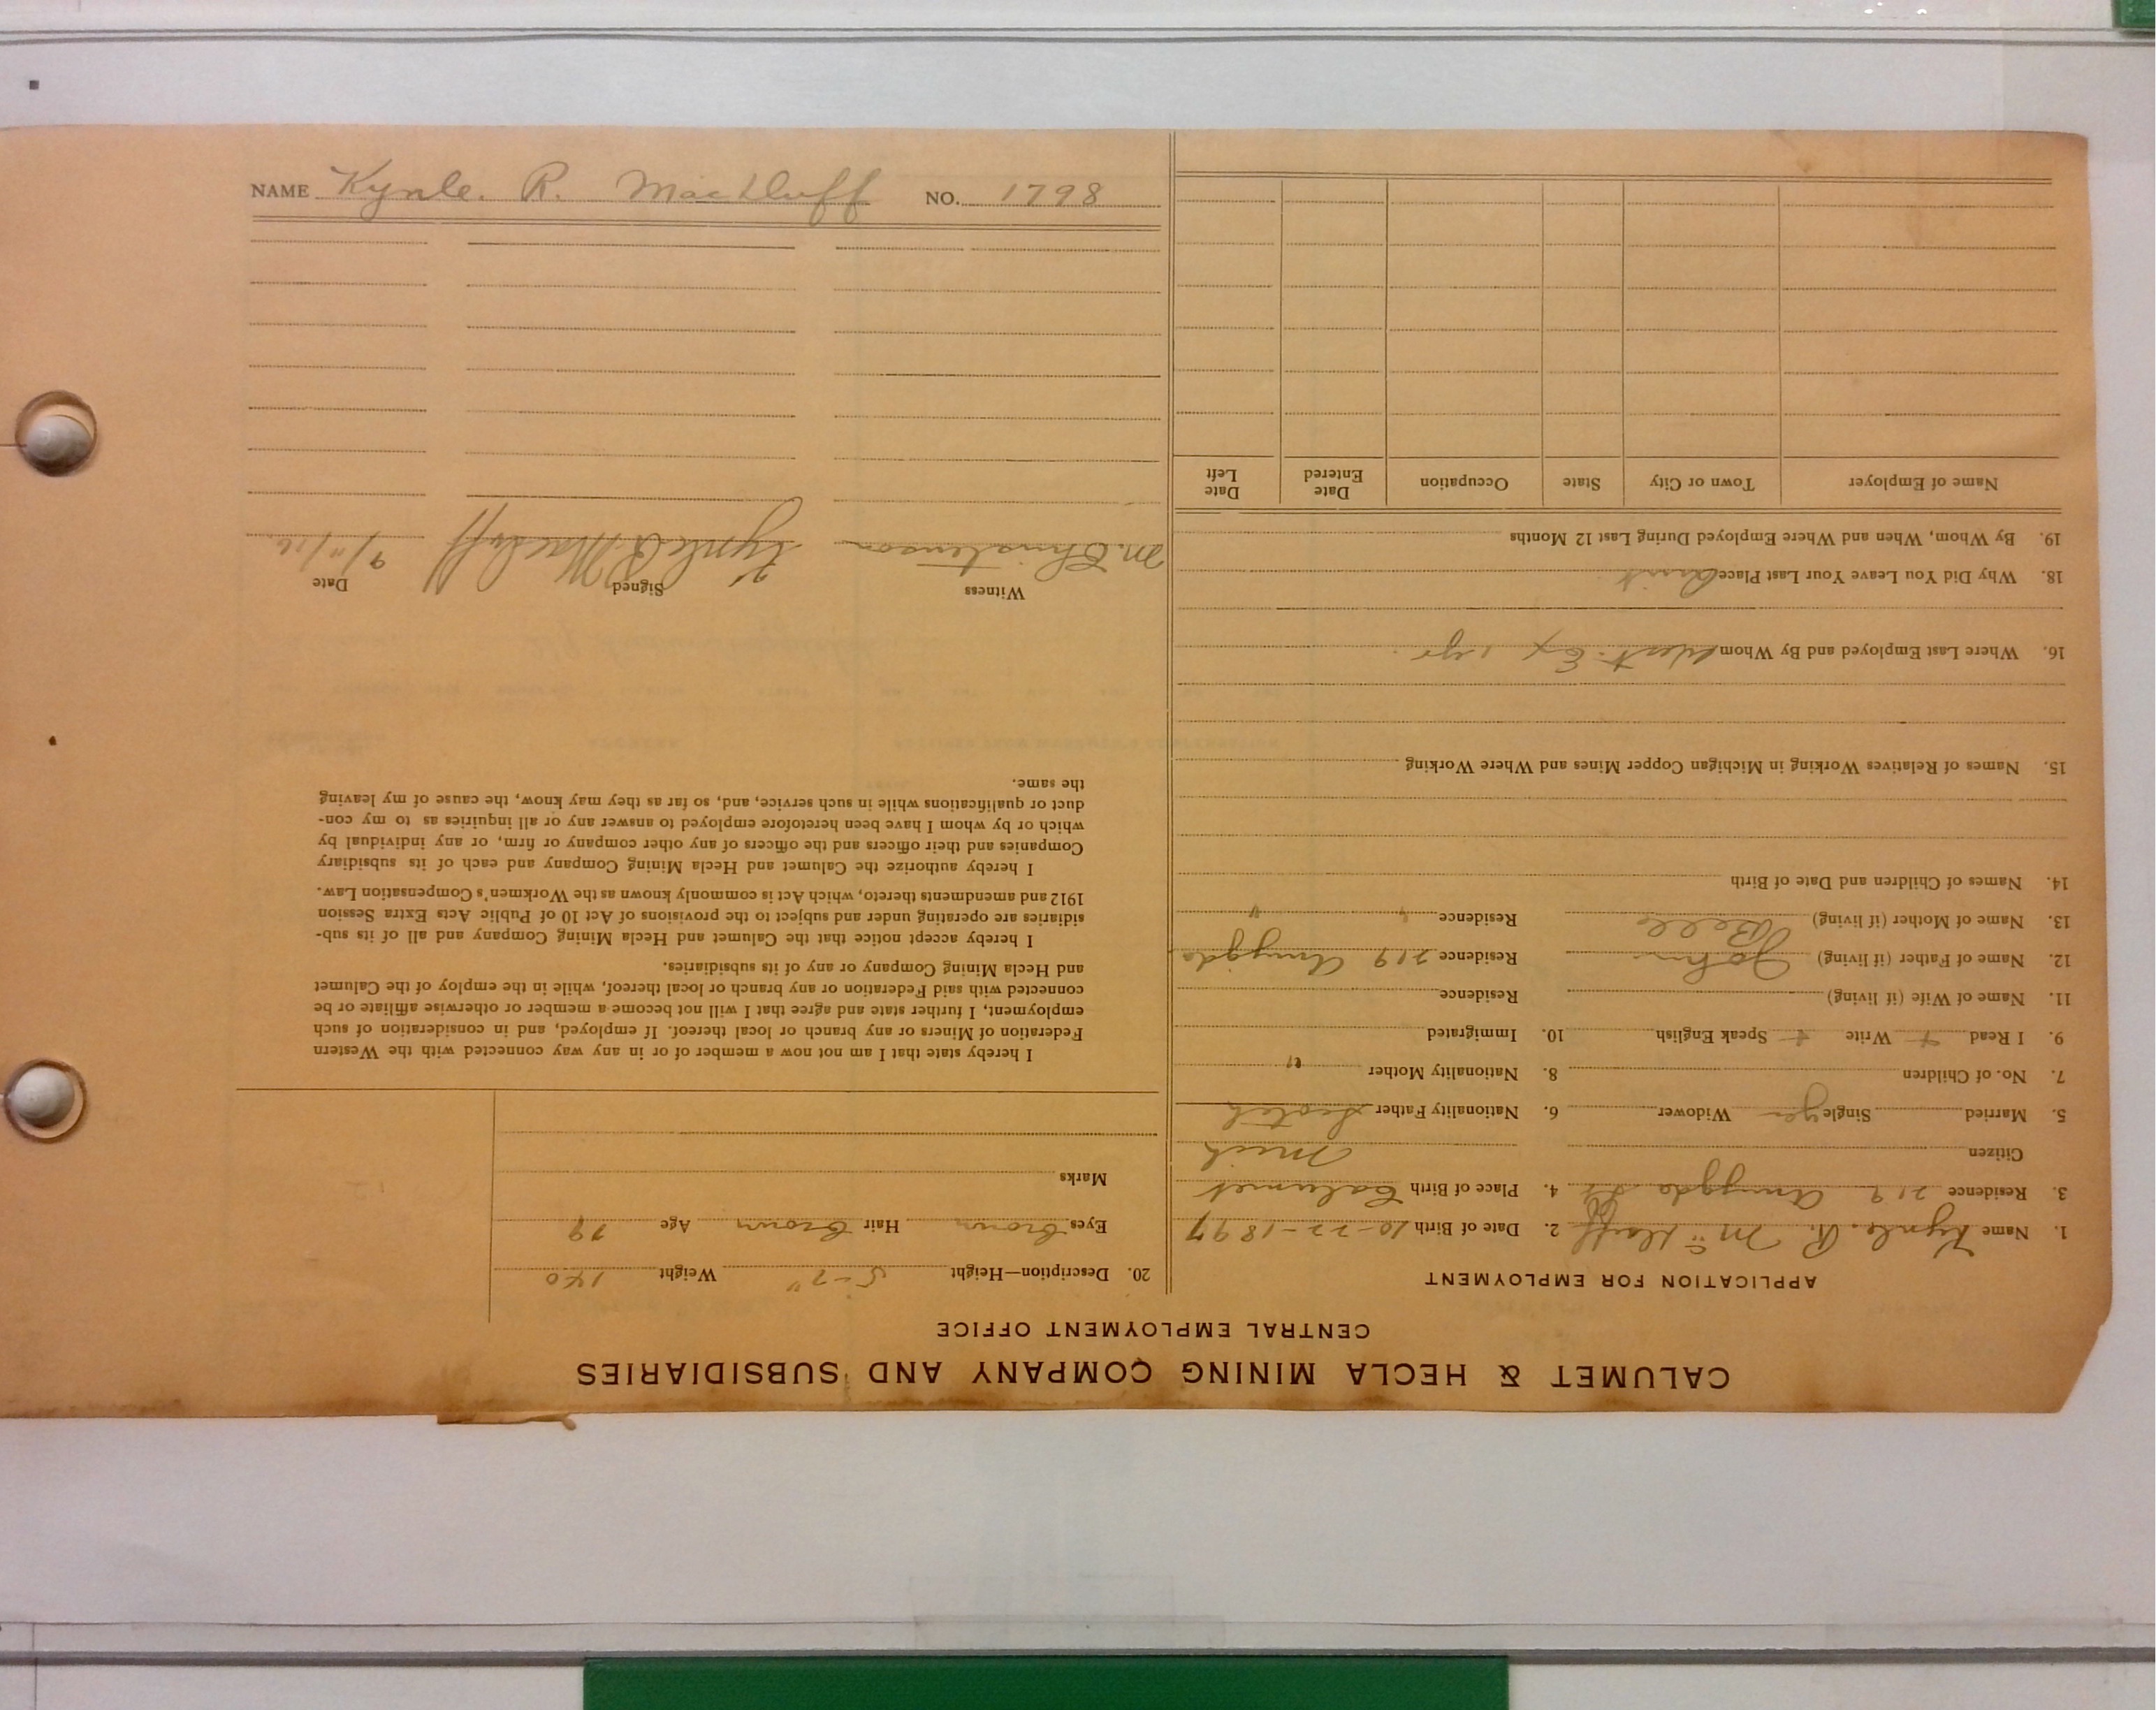 CALUMET & HECLA MINING COMPANY AND SUBSIDIARIES
CENTRAL EMPLOYMENT OFFICE
APPLICATION FOR EMPLOYMENT
1. Name Kynle. R. 2. Date of Birth 10-22-1897
3. Residence 219 Amygda St 4. Place of Birth Calumet
Citizen Mich
5. Married Single yes Widower 6. Nationality Father Scotch
7. No. of Children 8. Nationality Mother "
9. I Read + Write + Speak English 10. Immigrated
11. Name of Wife (if living) Residence
12. Name of Father (if living) John Residence 219 Amygda
13. Name of Mother (if living) Bell Residence " "
14. Names of Children and Date of Birth
15. Names of Relatives Working in Michigan Copper Mines and Where Working
16. Where Last Employed and By Whom West. Ex 1 yr.
18. Why Did You Leave Your Last Place Quit
19. By Whom, When and Where Employed During Last 12 Months
Name of Employer Town or City State Occupation Date Entered Date Left
20. Description—Height 5-7" Weight 140
Eyes brown Hair brown Age 19
Marks
I hereby state that I am not now a member of or in any way connected with the Western
Federation of Miners or any branch or local thereof. If employed, and in consideration of such
employment, I further state and agree that I will not become a member or otherwise affiliate or be
connected with said Federation or any branch or local thereof, while in the employ of the Calumet
and Hecla Mining Company or any of its subsidiaries.
I hereby accept notice that the Calumet and Hecla Mining Company and all of its sub-
sidiaries are operating under and subject to the provisions of Act 10 of Public Acts Extra Session
1912 and amendments thereto, which Act is commonly known as the Workmen's Compensation Law.
I hereby authorize the Calumet and Hecla Mining Company and each of its subsidiary
Companies and their officers and the officers of any other company or firm, or any individual by
which or by whom I have been heretofore employed to answer any or all inquiries as to my con-
duct or qualifications while in such service, and, so far as they may know, the cause of my leaving
the same.
Witness Signed Date
M. Christenson Kynle R. Macduff 9/11/16
NAME Kynle. R. MacDuff NO. 1798